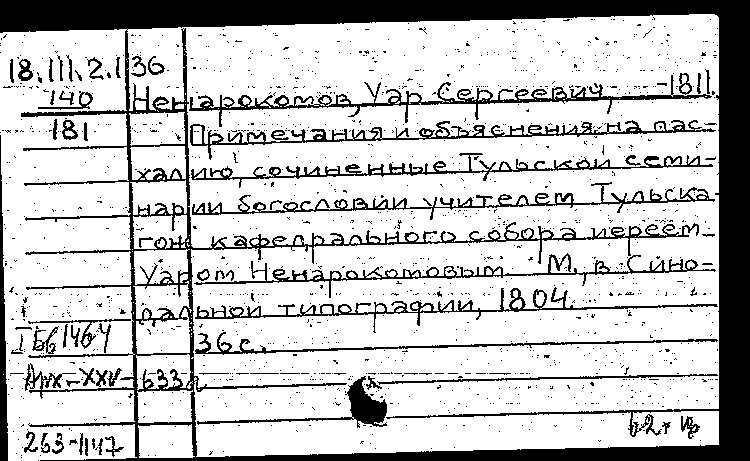 18.III.2.1 36
140 Ненарокомов, Уар Сергеевич, -1811.
181 Примечания и объяснения на пас-
халию, сочиненные Тульской семи-
нарии богословии учителем, Тульска-
гож кафедрального собора иереем
Уаром Ненарокомовым. М., в Сино-
дальной типографии, 1804.
I 561464 36 с.
Арх.-XXV-633а
263-1147